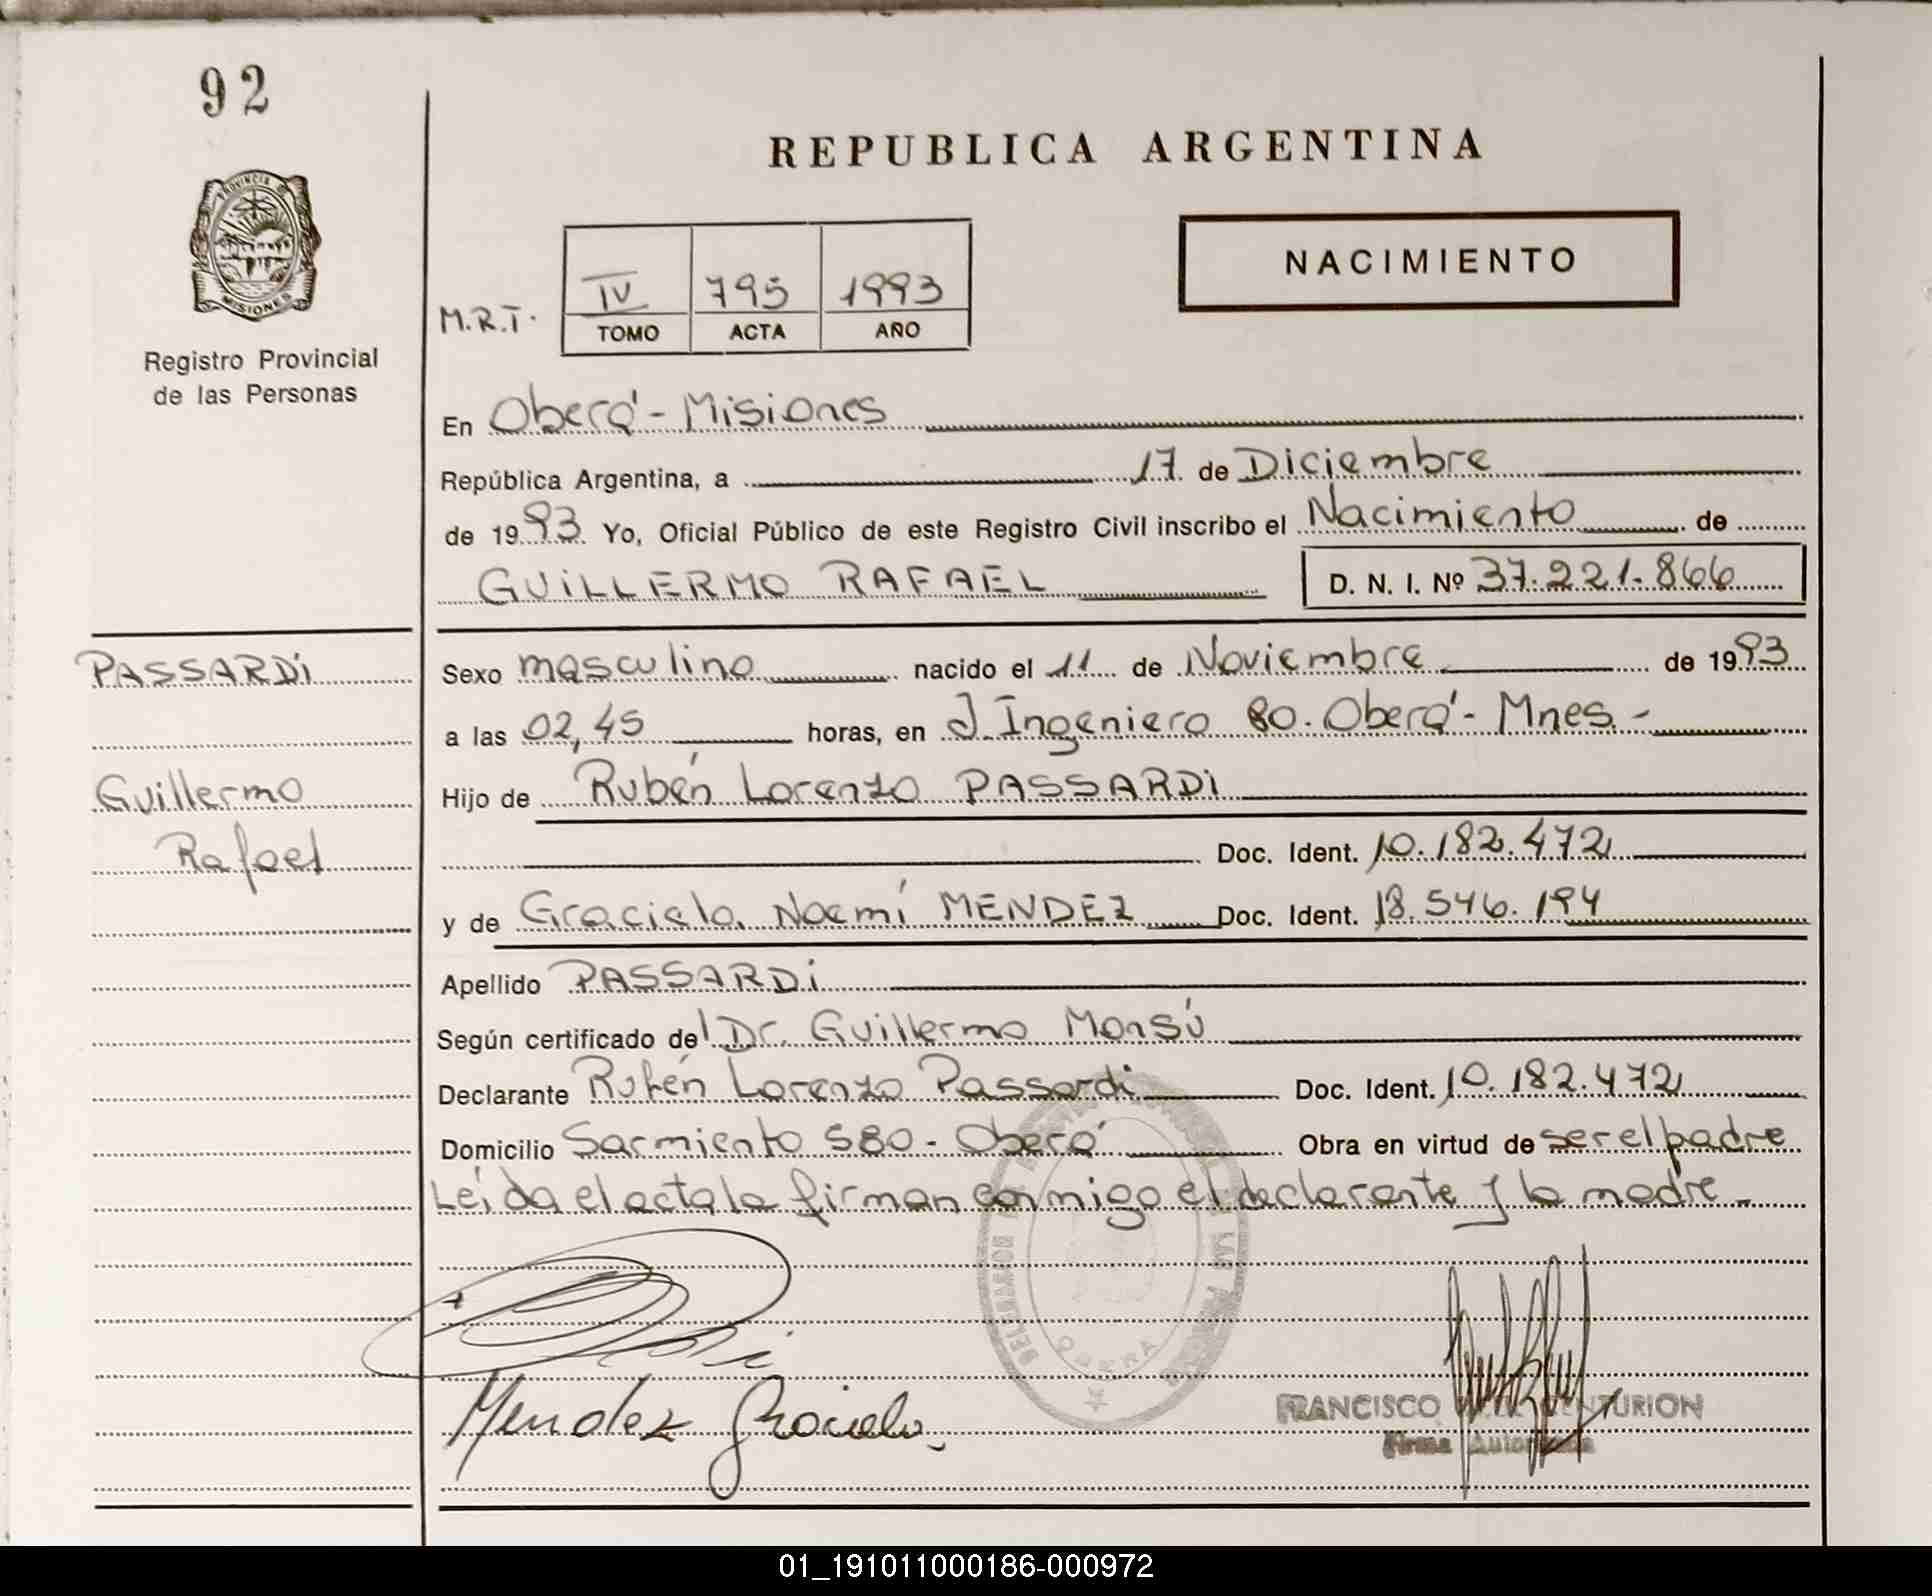 92
REPUBLICA ARGENTINA
PROVINCIA DE
MISIONES
Registro Provincial
de las Personas
NACIMIENTO
M.R.T.
IV 795 1993
TOMO ACTA AÑO
En Oberá - Misiones
República Argentina, a 17 de Diciembre
de 1993 Yo, Oficial Público de este Registro Civil inscribo el Nacimiento de
GUILLERMO RAFAEL D. N. I. Nº 37.221.866
PASSARDi
Guillermo
Rafael
Sexo masculino nacido el 11 de Noviembre de 1993
a las 02,45 horas, en J. Ingeniero 80. Oberá - Mnes.-
Hijo de Rubén Lorenzo PASSARDi
Doc. Ident. 10.182.472
y de Graciela Noemí MENDEZ Doc. Ident. 18.546.194
Apellido PASSARDi
Según certificado del Dr. Guillermo Monsú
Declarante Rubén Lorenzo Passardi Doc. Ident. 10.182.472
Domicilio Sarmiento 580 - Oberá Obra en virtud de ser el padre
Leída el acta la firman conmigo el declarante y la madre -
Mendez Graciela
OBERA
FRANCISCO CENTURION
Firma Autorizada
01_191011000186-000972